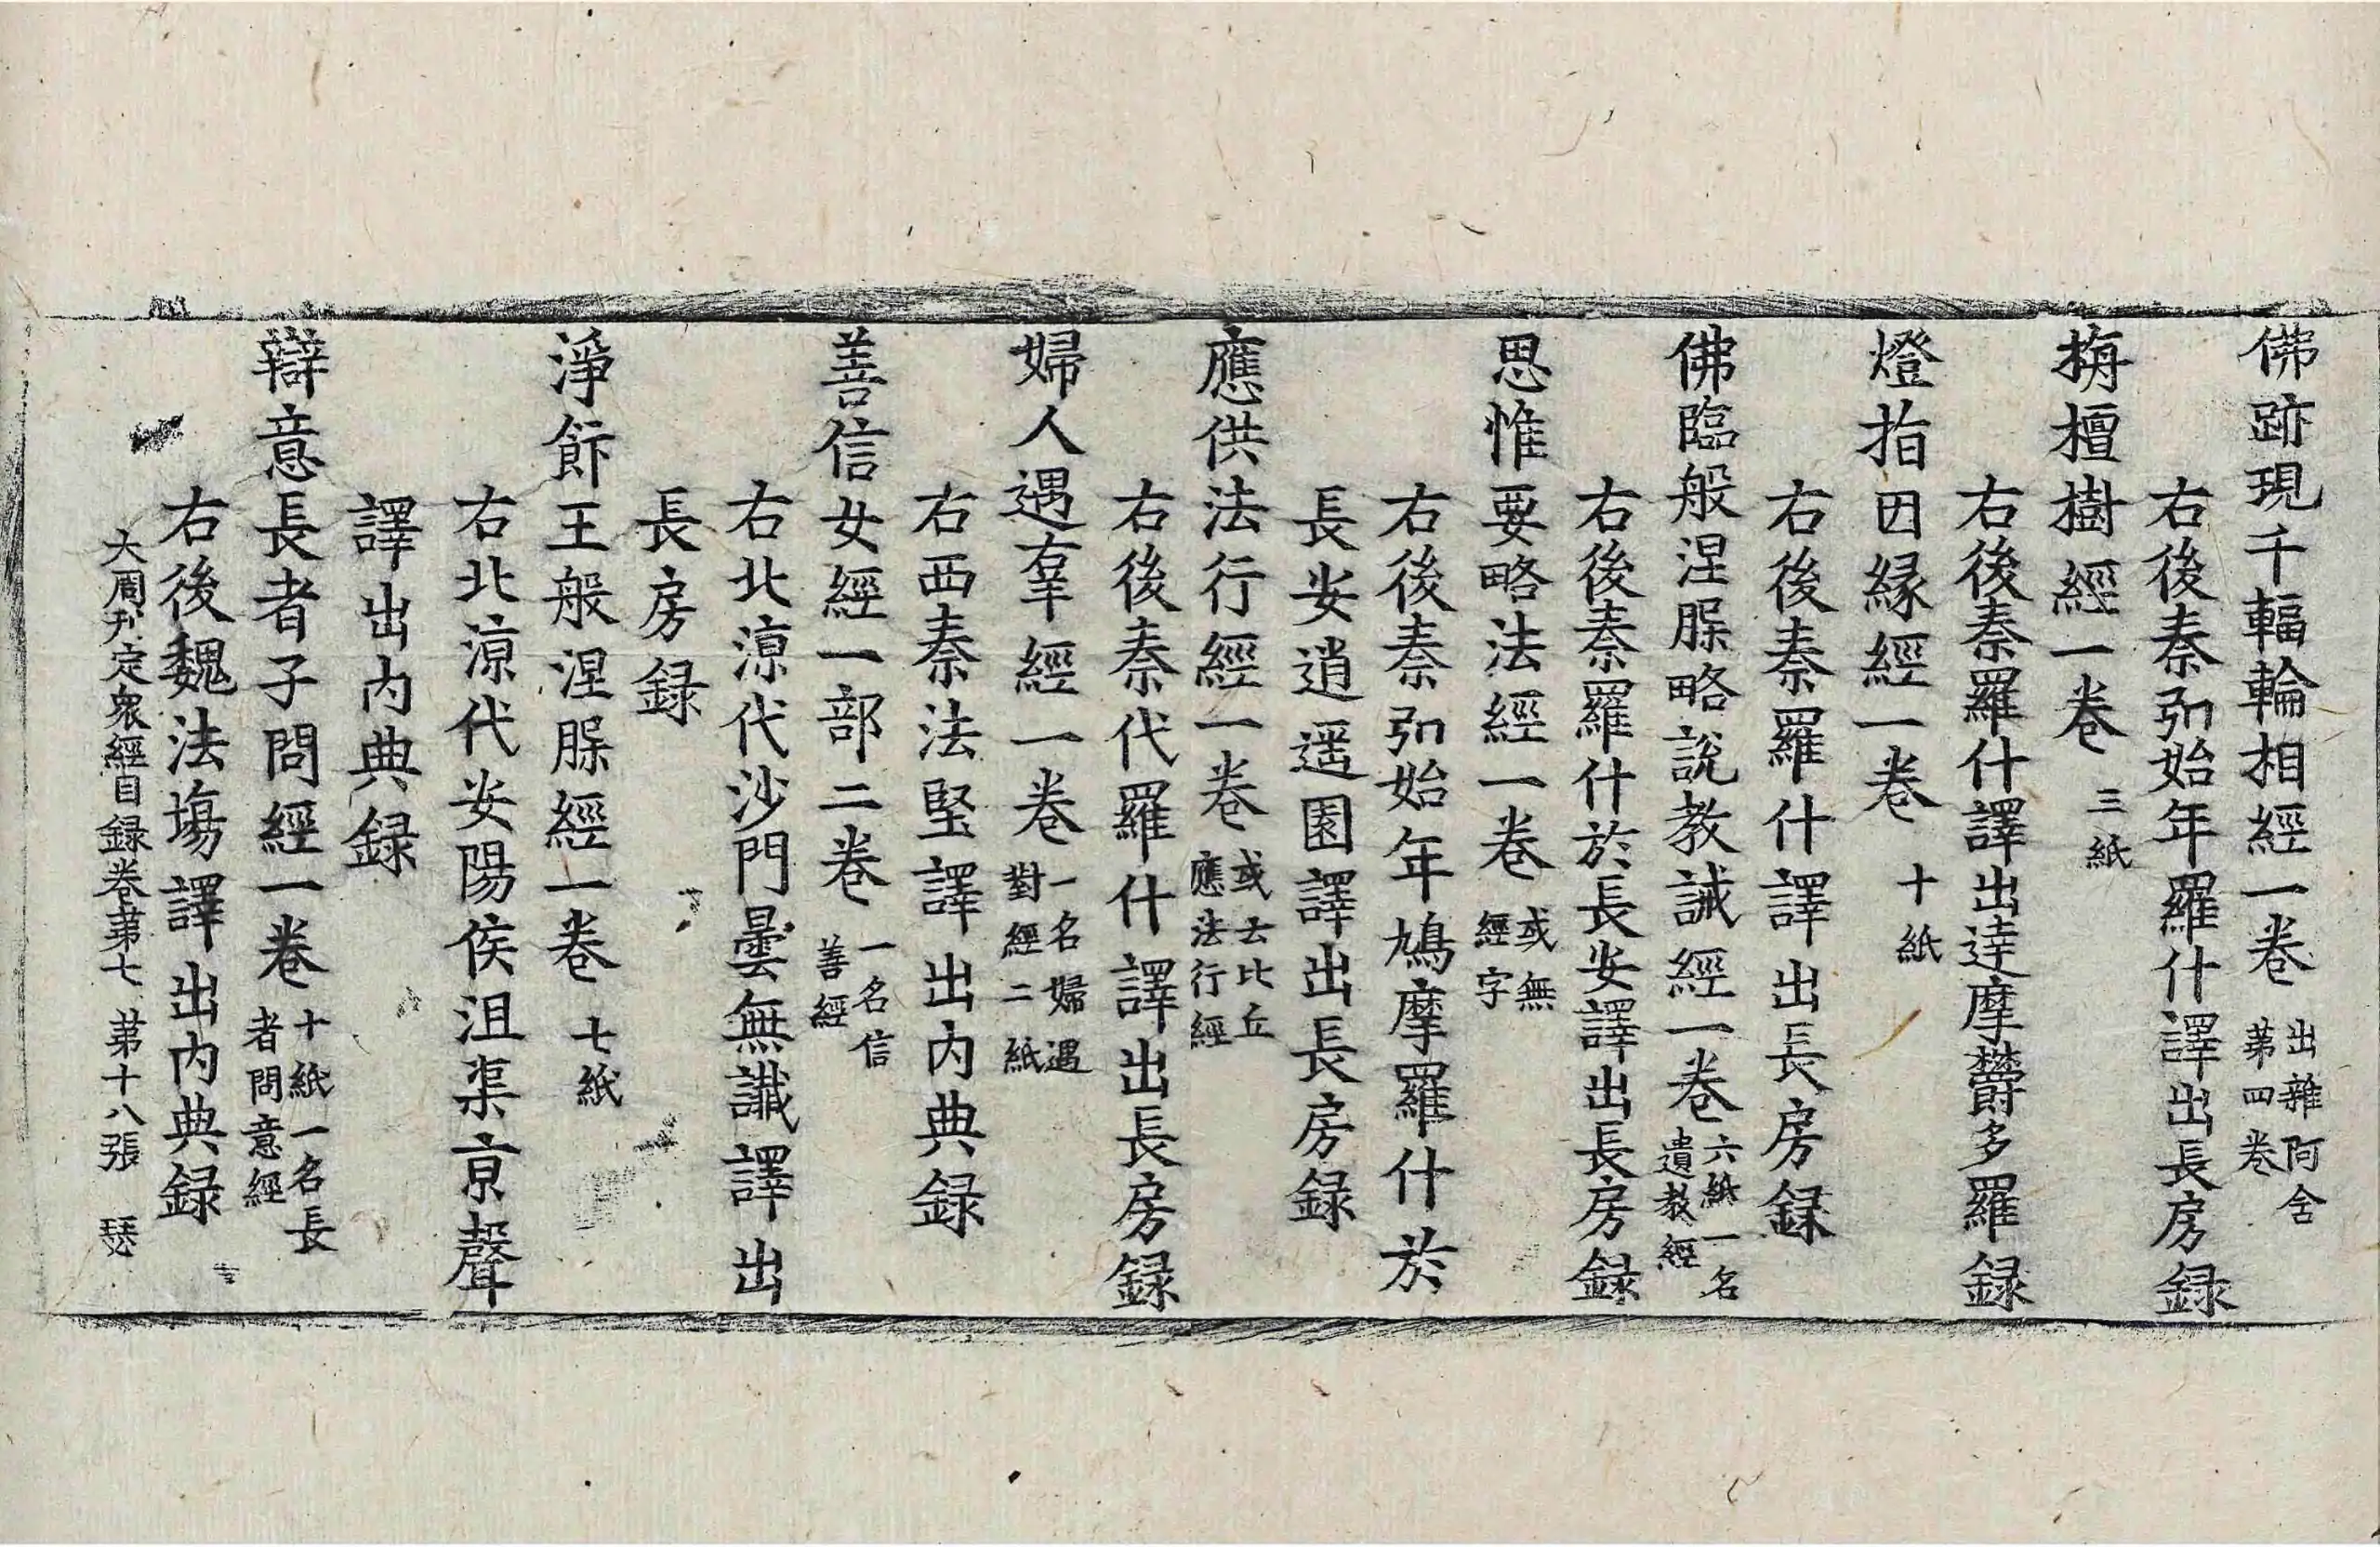 佛跡現千輻輪相經一卷 出雜阿含第四卷
右後秦弘始年羅什譯出長房録
栴檀樹經一卷 三紙
右後秦羅什譯出達摩欝多羅録
燈指因縁經一卷 十紙
右後秦羅什譯出長房録
佛臨般涅脲略説教誡經一卷 六紙一名遺教經
右後秦羅什於長安譯出長房録
思惟要略法經一卷 或無經字
右後秦弘始年鳩摩羅什於
長安逍遥園譯出長房録
應供法行經一卷 或云比丘應法行經
右後秦代羅什譯出長房録
婦人遇辜經一卷 一名婦遇對經二紙
右西秦法堅譯出内典録
善信女經一部二卷 一名信善經
右北涼代沙門曇無讖譯出
長房録
淨飰王般涅脲經一卷 七紙
右北涼代安陽侯沮渠京聲
譯出内典録
辯意長者子問經一卷 十紙一名長者問意經
右後魏法塲譯出内典録
大周刋定衆經目録卷苐七 苐十八張 瑟